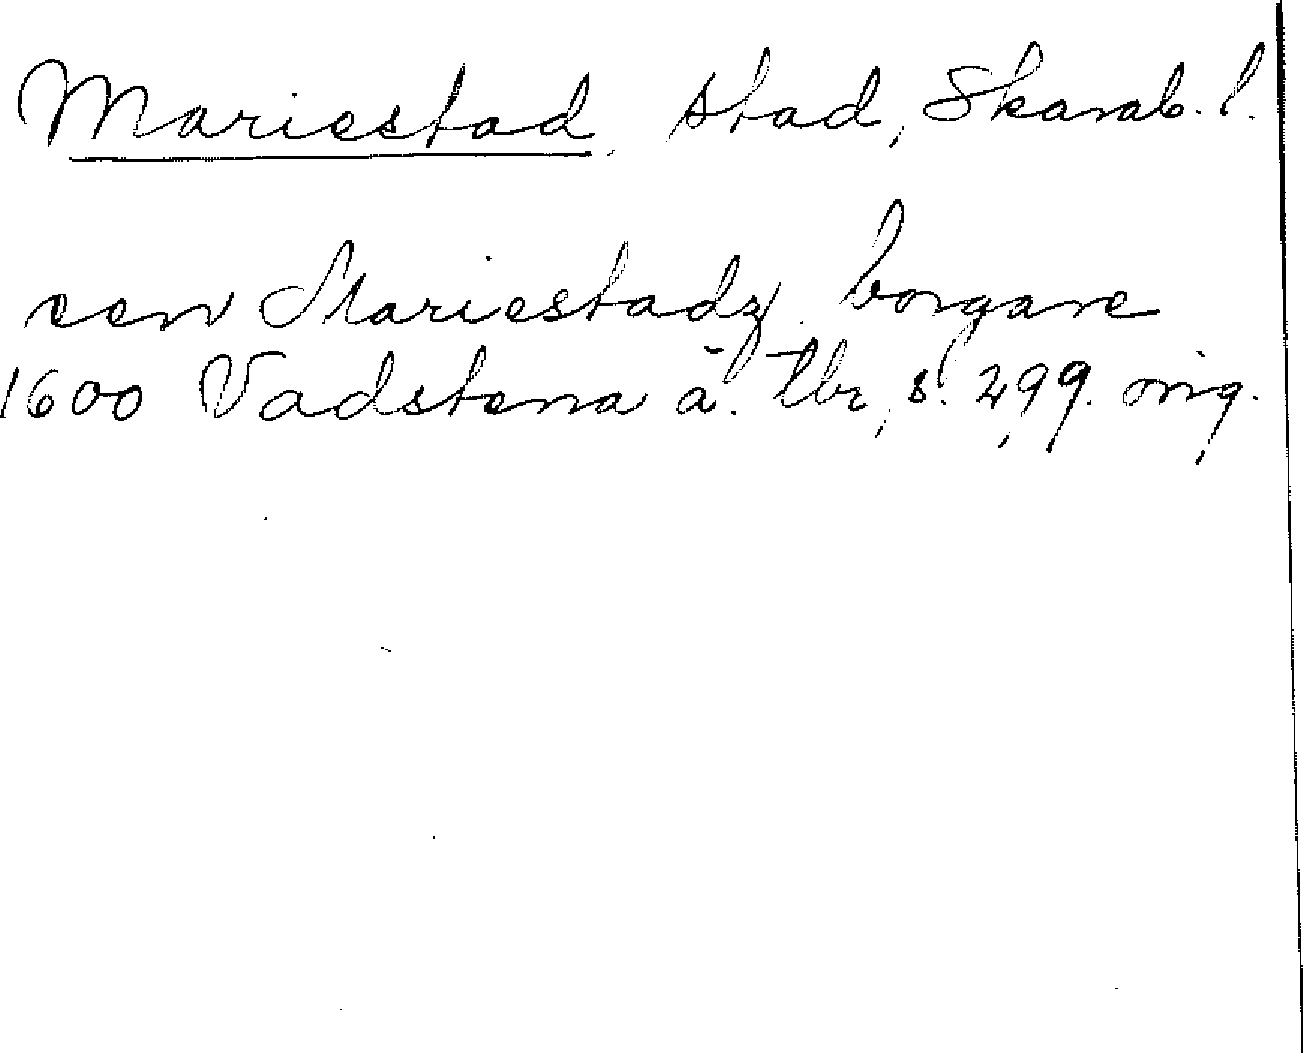 Mariestad stad, Skarab. l.
een Mariestadz borgare
1600 Vadstena ä. tbr, s. 299. orig.